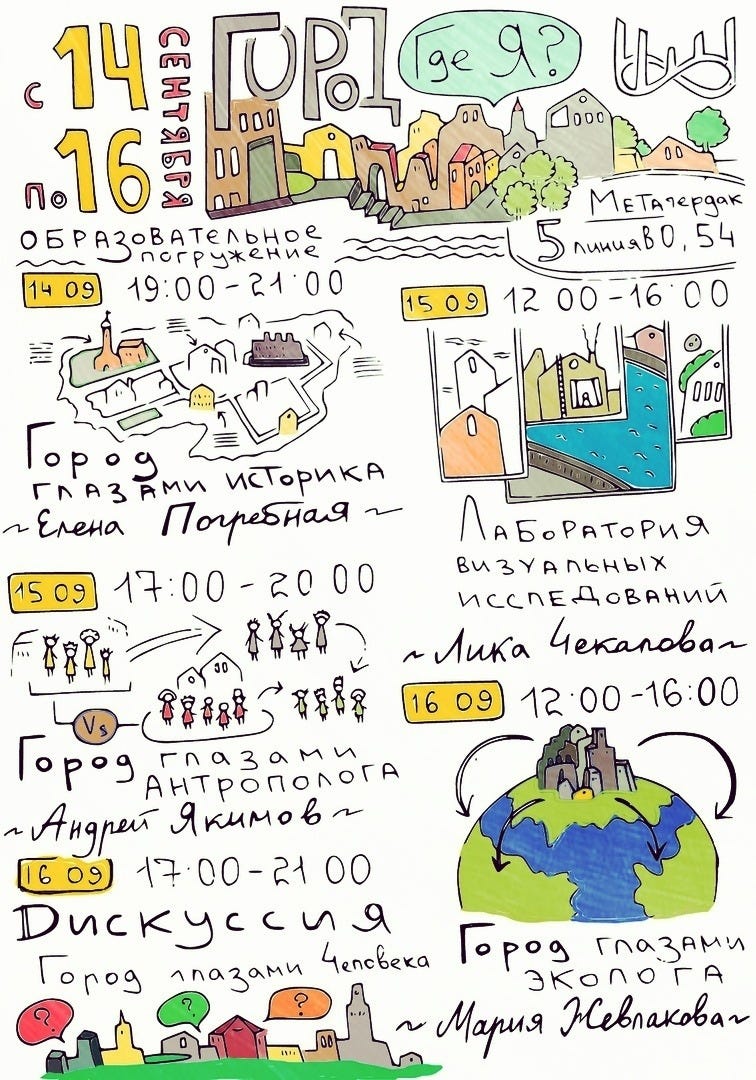 с 14
по 16
СЕНТЯБРЯ
ГОРОД
Где Я?
МЕТАчердак
5 линия ВО, 54
ОБРАЗОВАТЕЛЬНОЕ
погружение
14 09 19:00-21:00
Город
ГЛАЗАМИ ИСТОРИКА
~Елена Погребная~
15 09 12 00-16:00
ЛАБОРАТОРИЯ
ВИЗУАЛЬНЫХ
ИССЛЕДОВАНИЙ
~Лика Чекалова~
15 09 17:00-20 00
Vs
Город глазами
АНТРОПОЛОГА
~Андрей Якимов~
16 09 12:00-16:00
Город глазами
ЭКОЛОГА
~Мария Жевлакова~
16 09 17:00-21 00
Дискуссия
Город глазами Человека
? ? ?